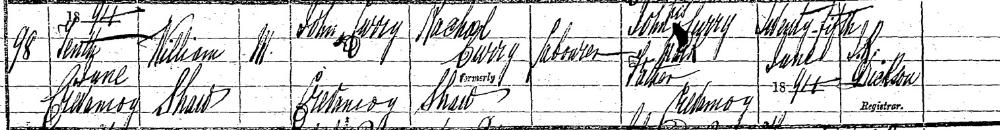 98
18 94
Tenth
June
Credanroy
William
Shaw
M.
John Curry
Credanroy
Rachael
Curry
formerly
Shaw
Labourer
John his Curry
X mark
Father
Credanroy
Twenty-fifth
June
18 94
Dickson
Registrar.